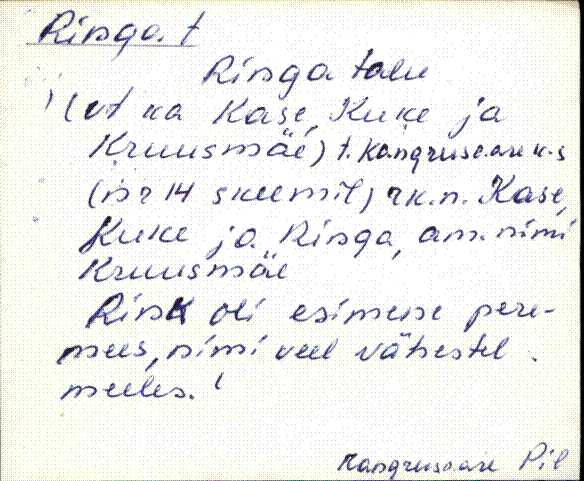 Ringa t
Ringa talu
(vt ka Kase, Kuke ja
Kruusmäe) t. Kangrusaare k-s
(nr 14 skeemil) rk.n. Kase,
Kuke ja Ringa, am. nimi
Kruusmäe
Rink oli esimene pere-
mees, nimi veel vähestel
meeles.
Kangrusaare Pil